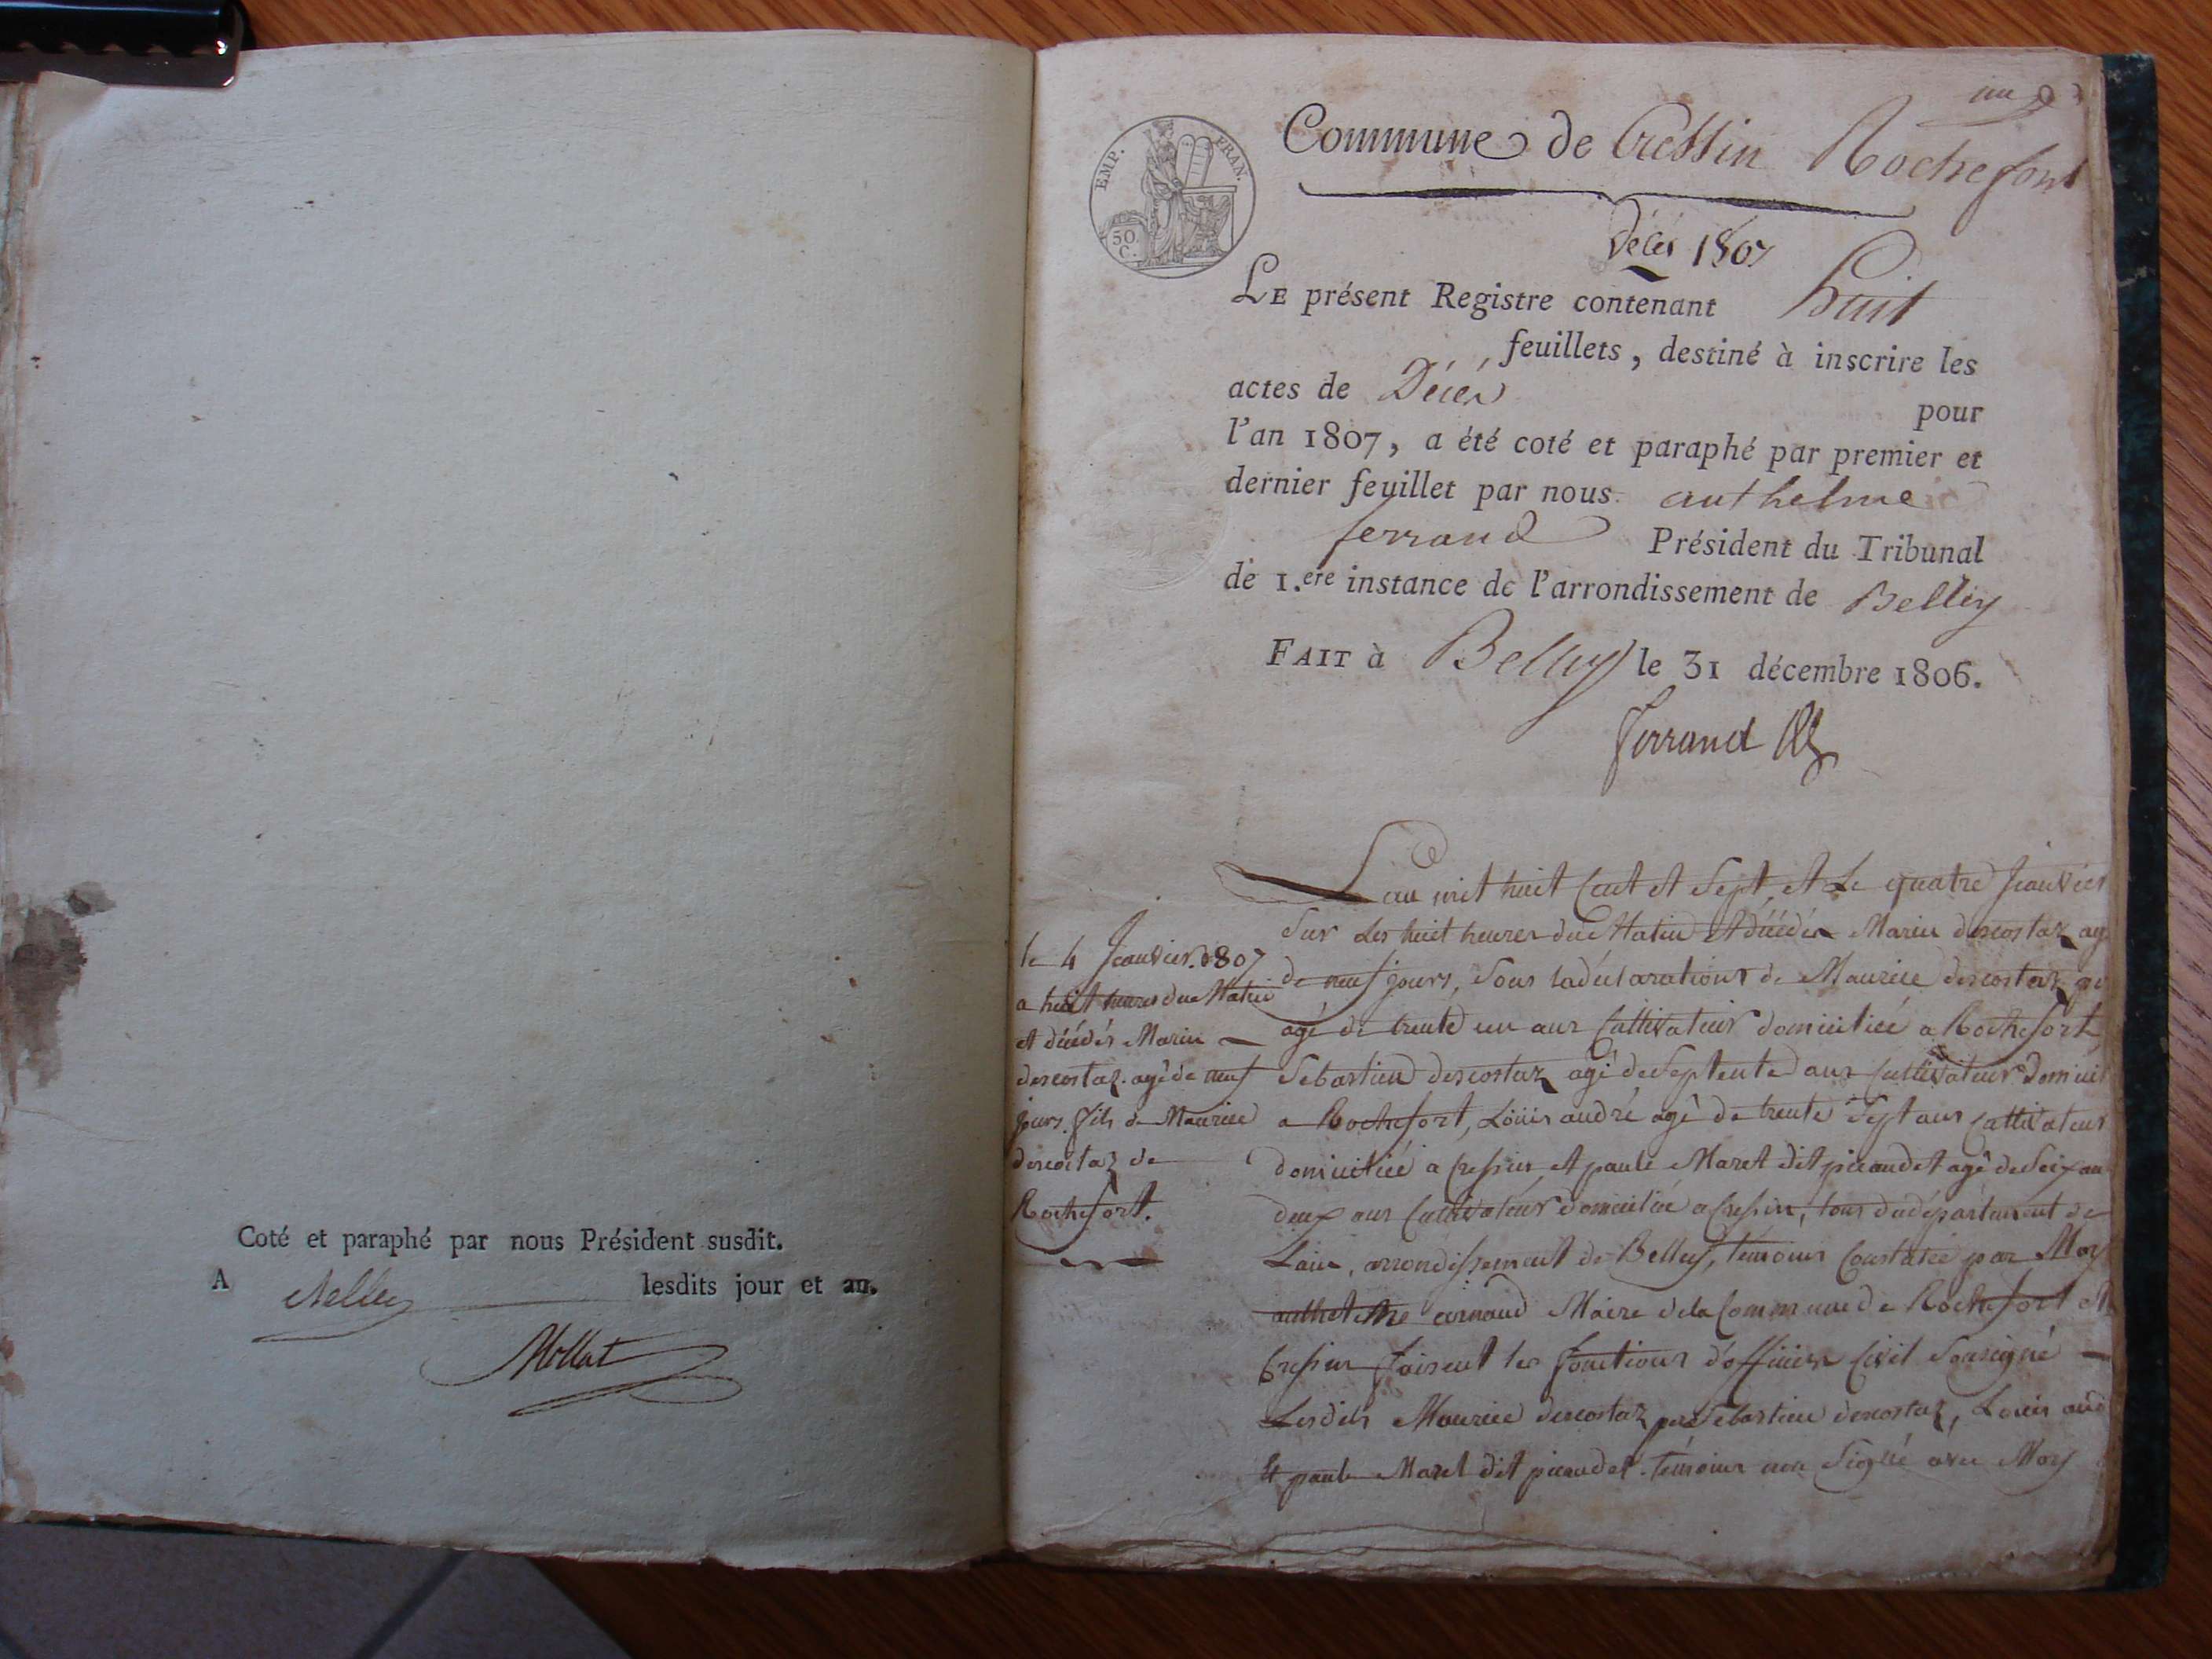 Coté et paraphé par nous Président susdit.
A Belley lesdits jour et an.
Mollat
un
EMP. FRAN.
50
C.
Commune de Cressin Rochefort
Décès 1807
LE présent Registre contenant huit
feuillets, destiné à inscrire les
actes de Décés
pour
l'an 1807, a été coté et paraphé par premier et
dernier feuillet par nous anthelme
ferrand Président du Tribunal
de 1.ere instance de l'arrondissement de Belley
FAIT à Belley le 31 décembre 1806.
ferrand
le 4 Jeanvier 1807
a huit heures du Matin
et décédés Marin
descostaz agé de neuf
jours, fils de Maurice
descostaz de
Rochefort.
Lan mil huit Cent et Sept, et Le quatre Jeanvier
Sur Les huit heures du Matin et décédés Marin descostaz ag
de neuf jours, Sous la déclarations de Maurice descostaz pe
agé de trente un ans Cultivateur domicilié a Rochefort
Sebastien descostaz agé de Septente ans Cultivateur Domicil
a Rochefort, Louis andré agé de trente Sept ans Cultivateur
domicilié a Cressin, et paule Maret dit picaudet agé de Soixan
deux ans Cultivateur domicilié a Cressin, tous du département de
Lain, arrondissement de Belley, témoins Constatée par Moy
anthelme arnaud Maire de la Commune de Rochefort et
Cressin faisent les fonctions d'officier Civil Sousigné
Lesdits Maurice descostaz, Sebastien descostaz, Louis and
Et paule Maret dit picaudet témoins non Signé avec Moy